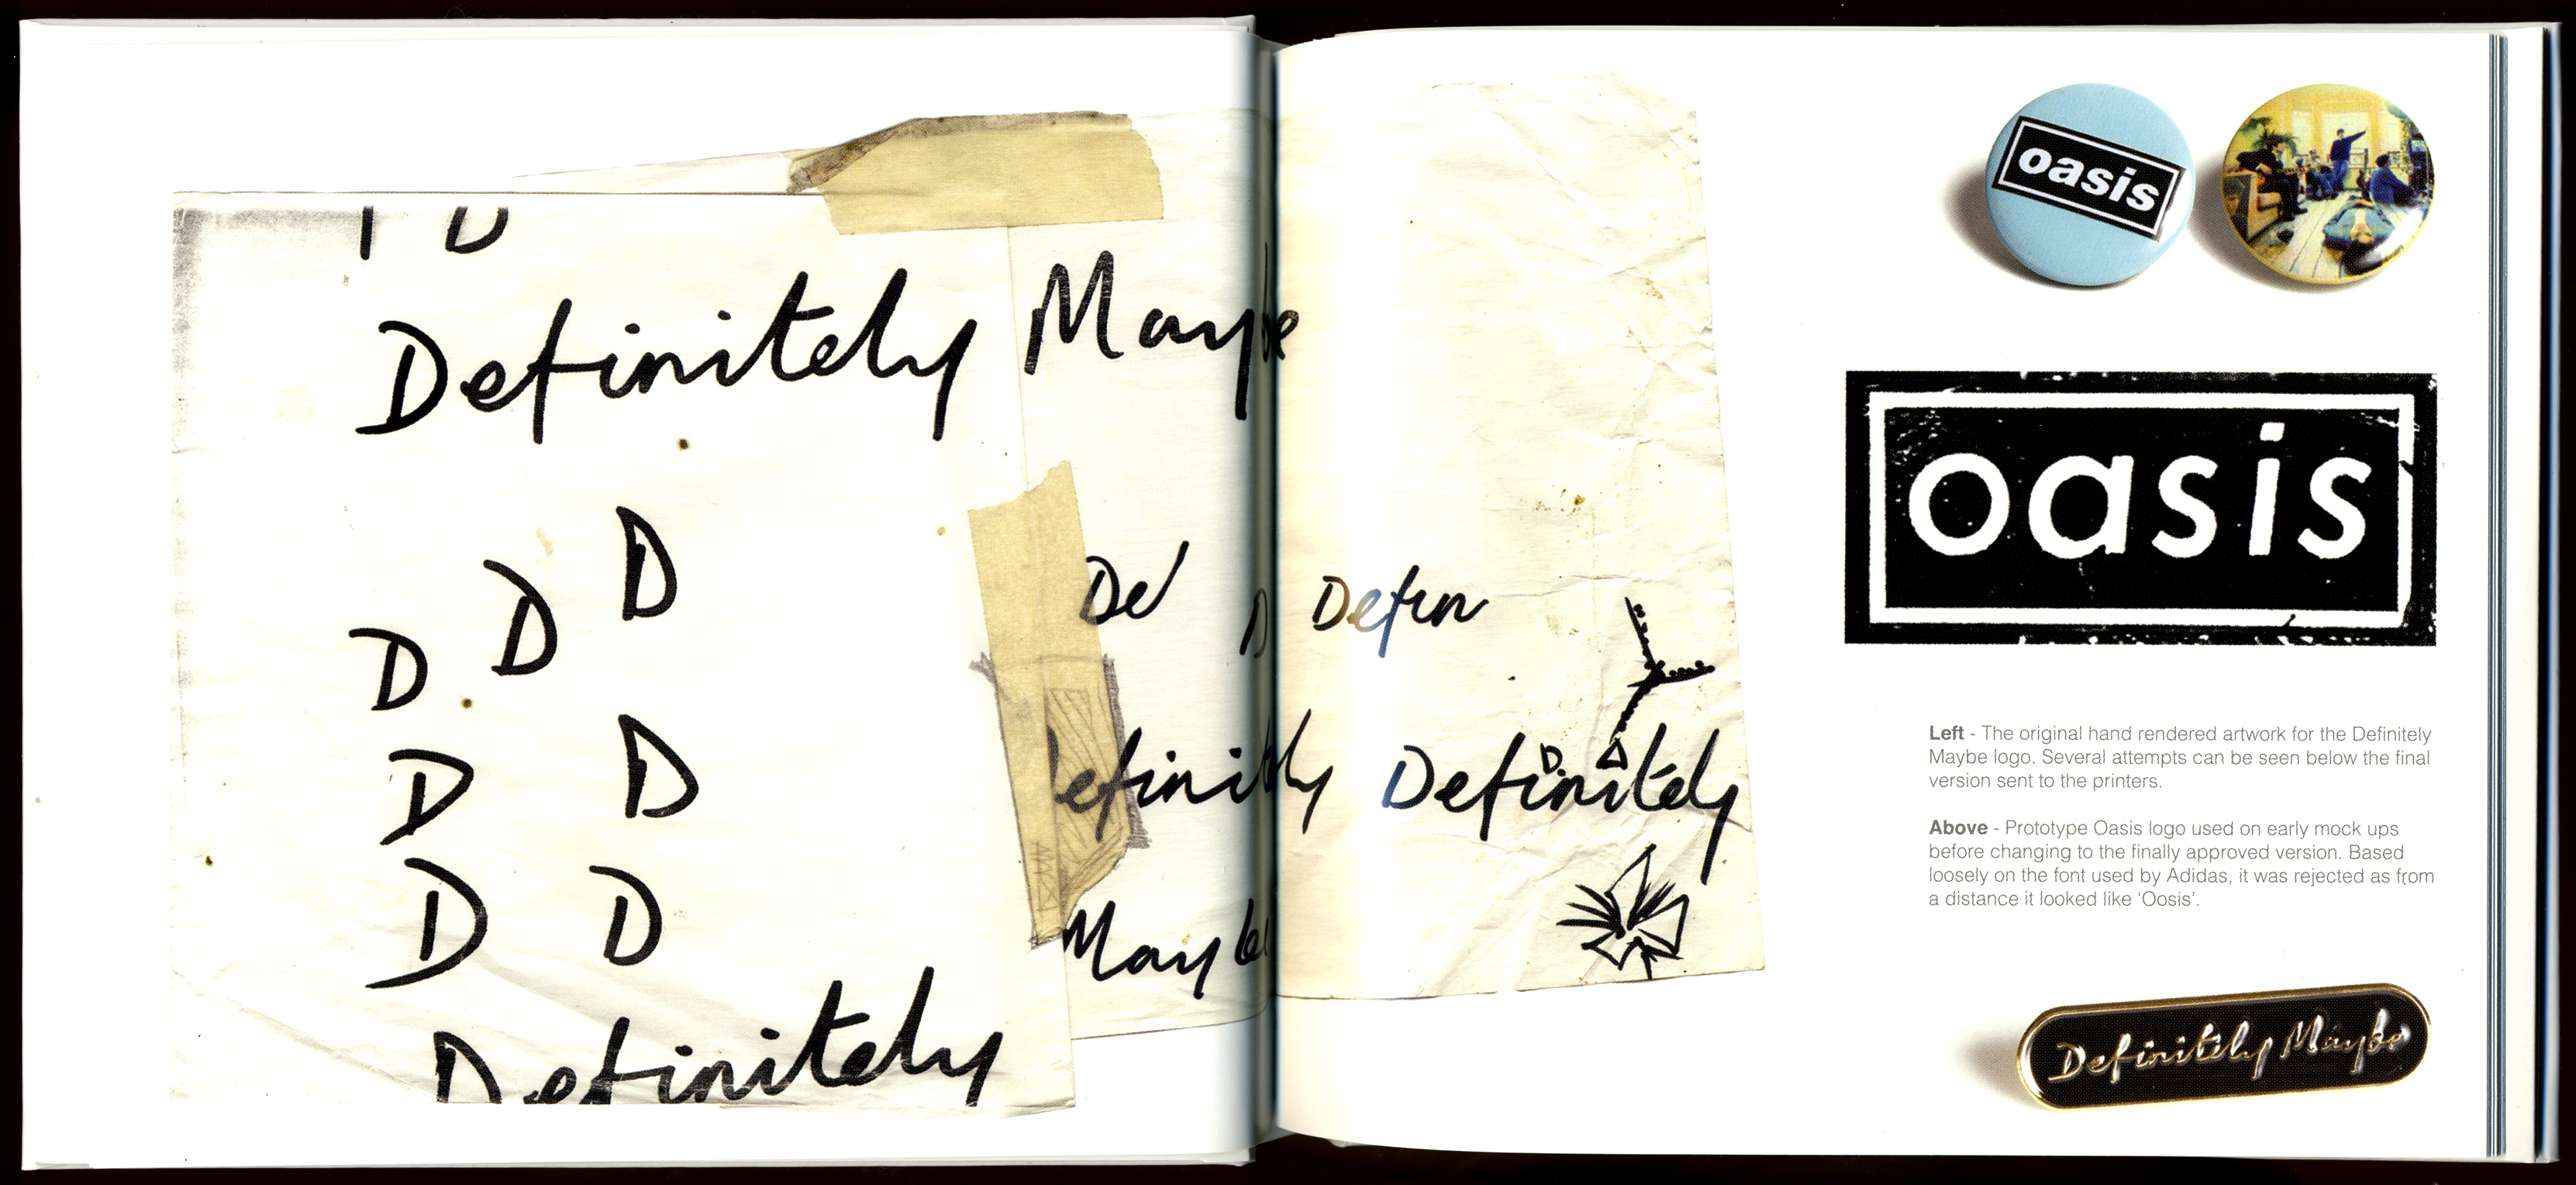 D
Definitely Maybe
D
D
D
D
D
D
D
Definitely
De
D
Defin
efinitely
Definitely
D
D
May
oasis
oasis
Left - The original hand rendered artwork for the Definitely
Maybe logo. Several attempts can be seen below the final
version sent to the printers.
Above - Prototype Oasis logo used on early mock ups
before changing to the finally approved version. Based
loosely on the font used by Adidas, it was rejected as from
a distance it looked like ‘Oosis’.
Definitely Maybe